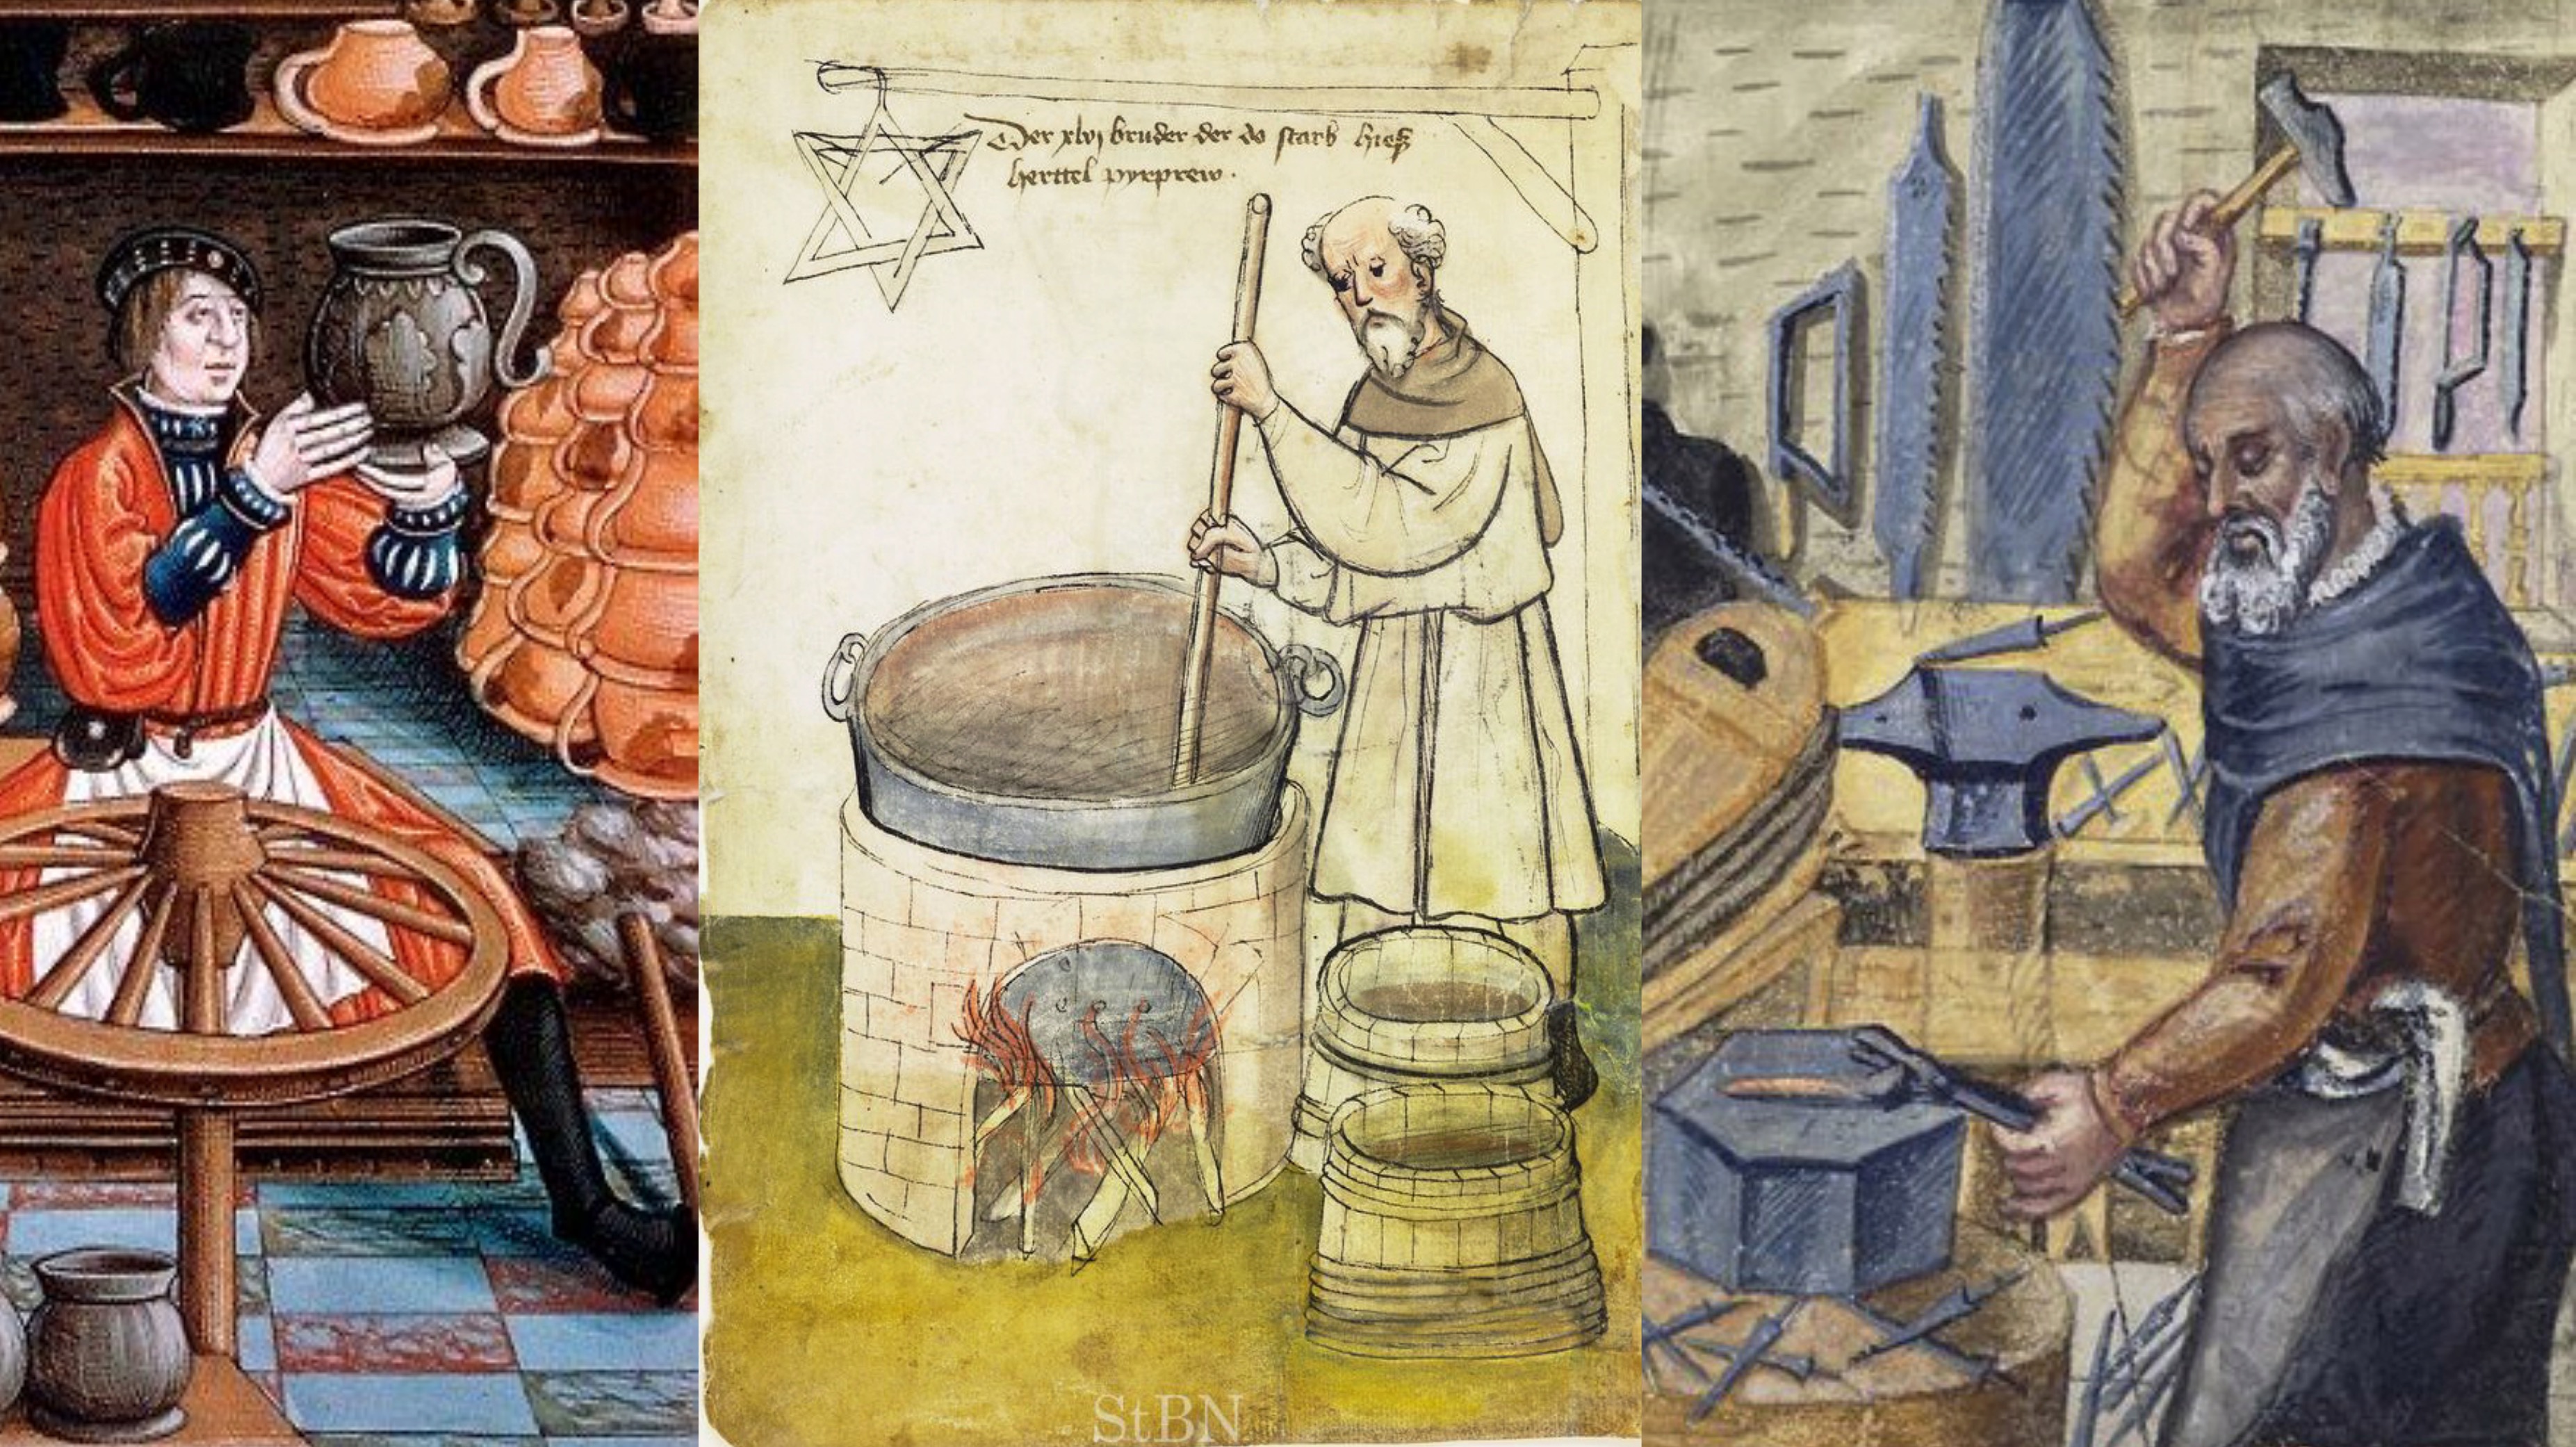 Der xlvj bruder der do starb hieß
herttel pyrprew .
StBN